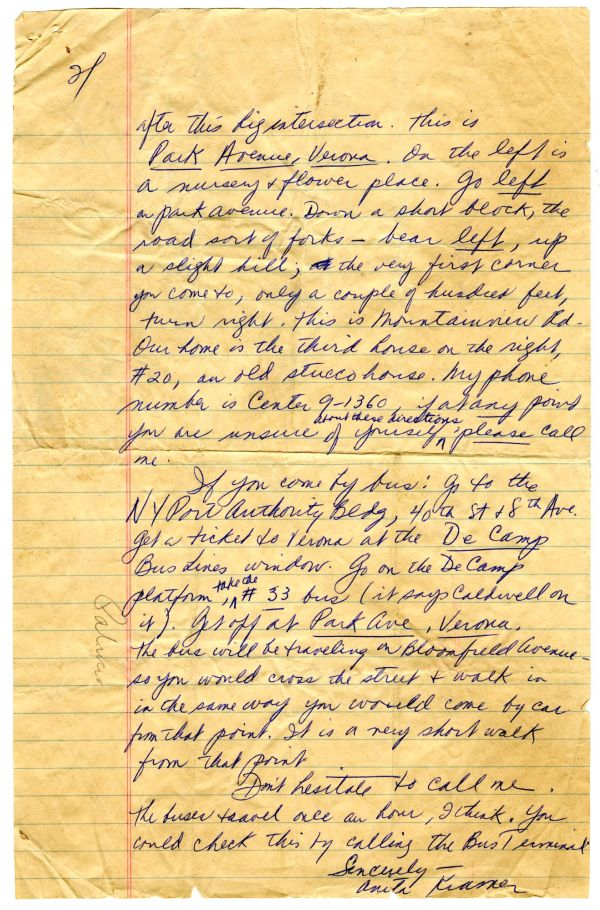 2/
after this big intersection. This is
Park Avenue, Verona. On the left is
a nursery & flower place. Go left
on park avenue. Down a short block, the
road sort of forks – bear left, up
a slight hill; at the very first corner
you come to, only a couple of hundred feet,
turn right. This is Mountainview Rd.
Our home is the third house on the right,
#20, an old stucco house. My phone
number is Center 9-1360 if at any point
about these directions
you are unsure of yourself, please call
me.
If you come by bus: go to the
NY Port Authority Bldg, 40th St & 8th Ave.
Get a ticket to Verona at the De Camp
Bus Lines window. Go on the DeCamp
platform, take the #33 bus (it says Caldwell on
it). Get off at Park Ave, Verona.
The bus will be traveling on Bloomfield Avenue –
so you would cross the street & walk in
in the same way you would come by car
from that point. It is a very short walk
from that point
Don't hesitate to call me.
The buses travel once an hour, I think. You
could check this by calling the Bus Terminal
Sincerely –
Anita Kramer